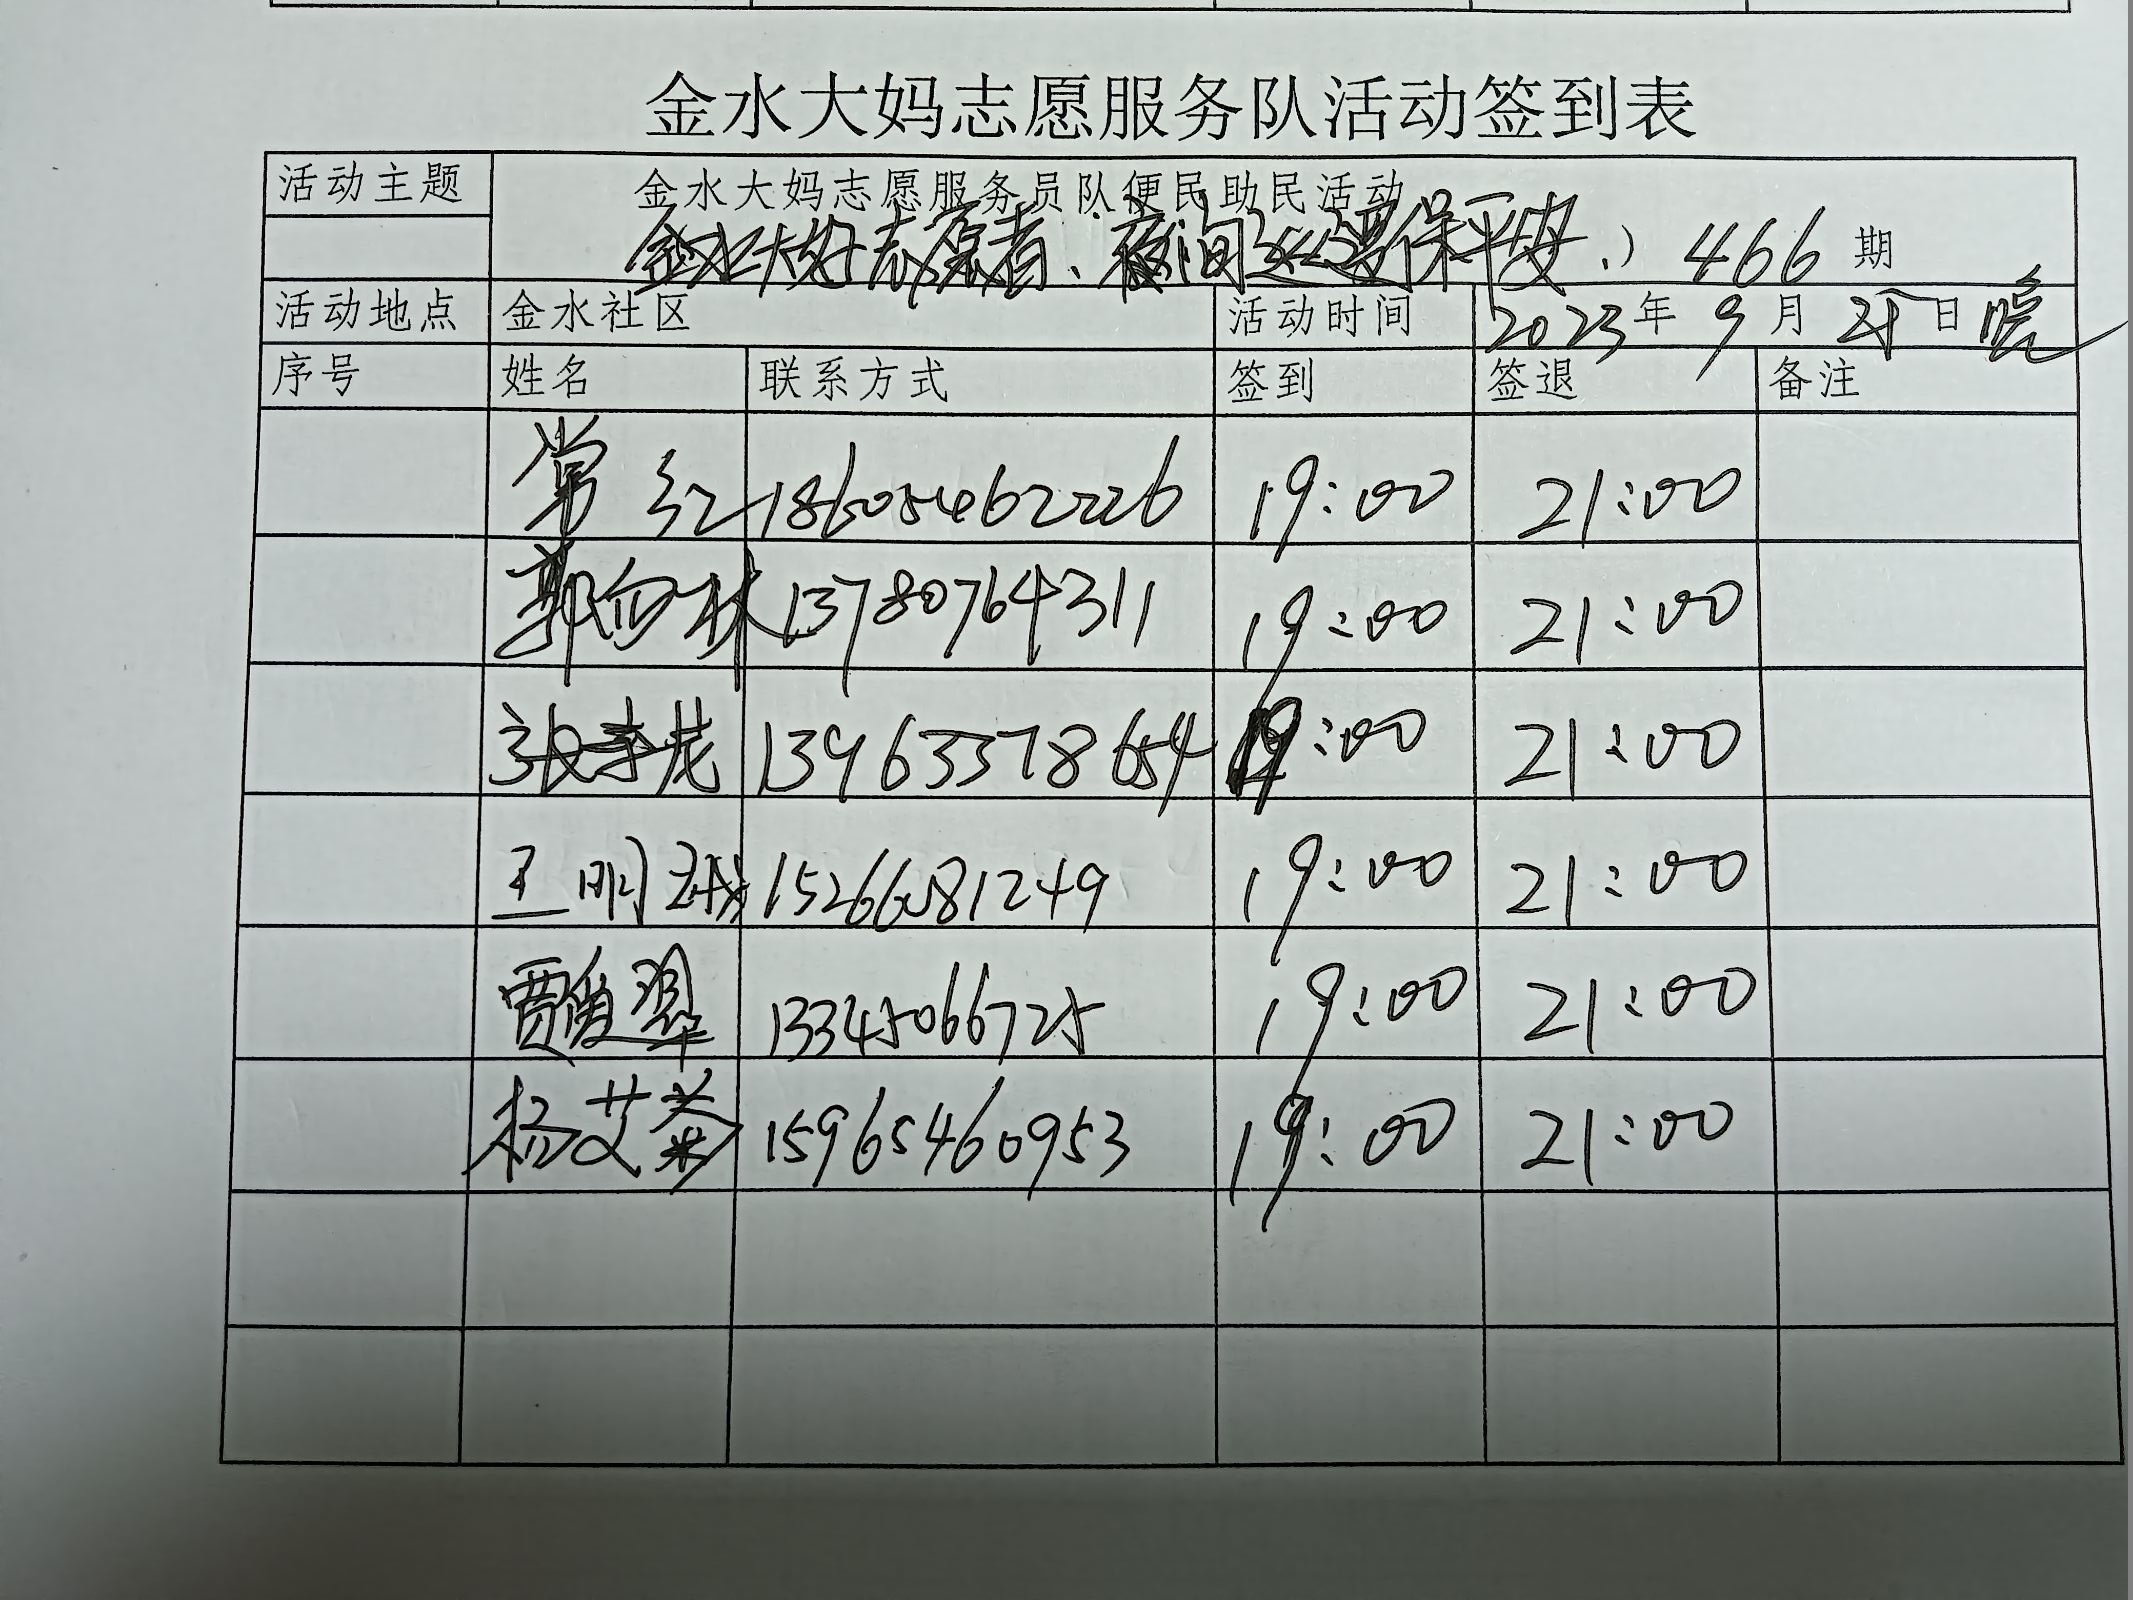 金水大妈志愿服务队活动签到表
活动主题 金水大妈志愿服务员队便民助民活动
金水大好志愿者、夜间巡逻保平安、) 466 期
活动地点 金水社区 活动时间 2023 年 9 月 日 晚
序号 姓名 联系方式 签到 签退 备注
常红 18605462226 19:00 21:00
郭向林 13780764311 19:00 21:00
张李花 13963378654 19:00 21:00
王明 15266081249 19:00 21:00
贾俊翠 13345066725 19:00 21:00
杨艾 15965460953 19:00 21:00